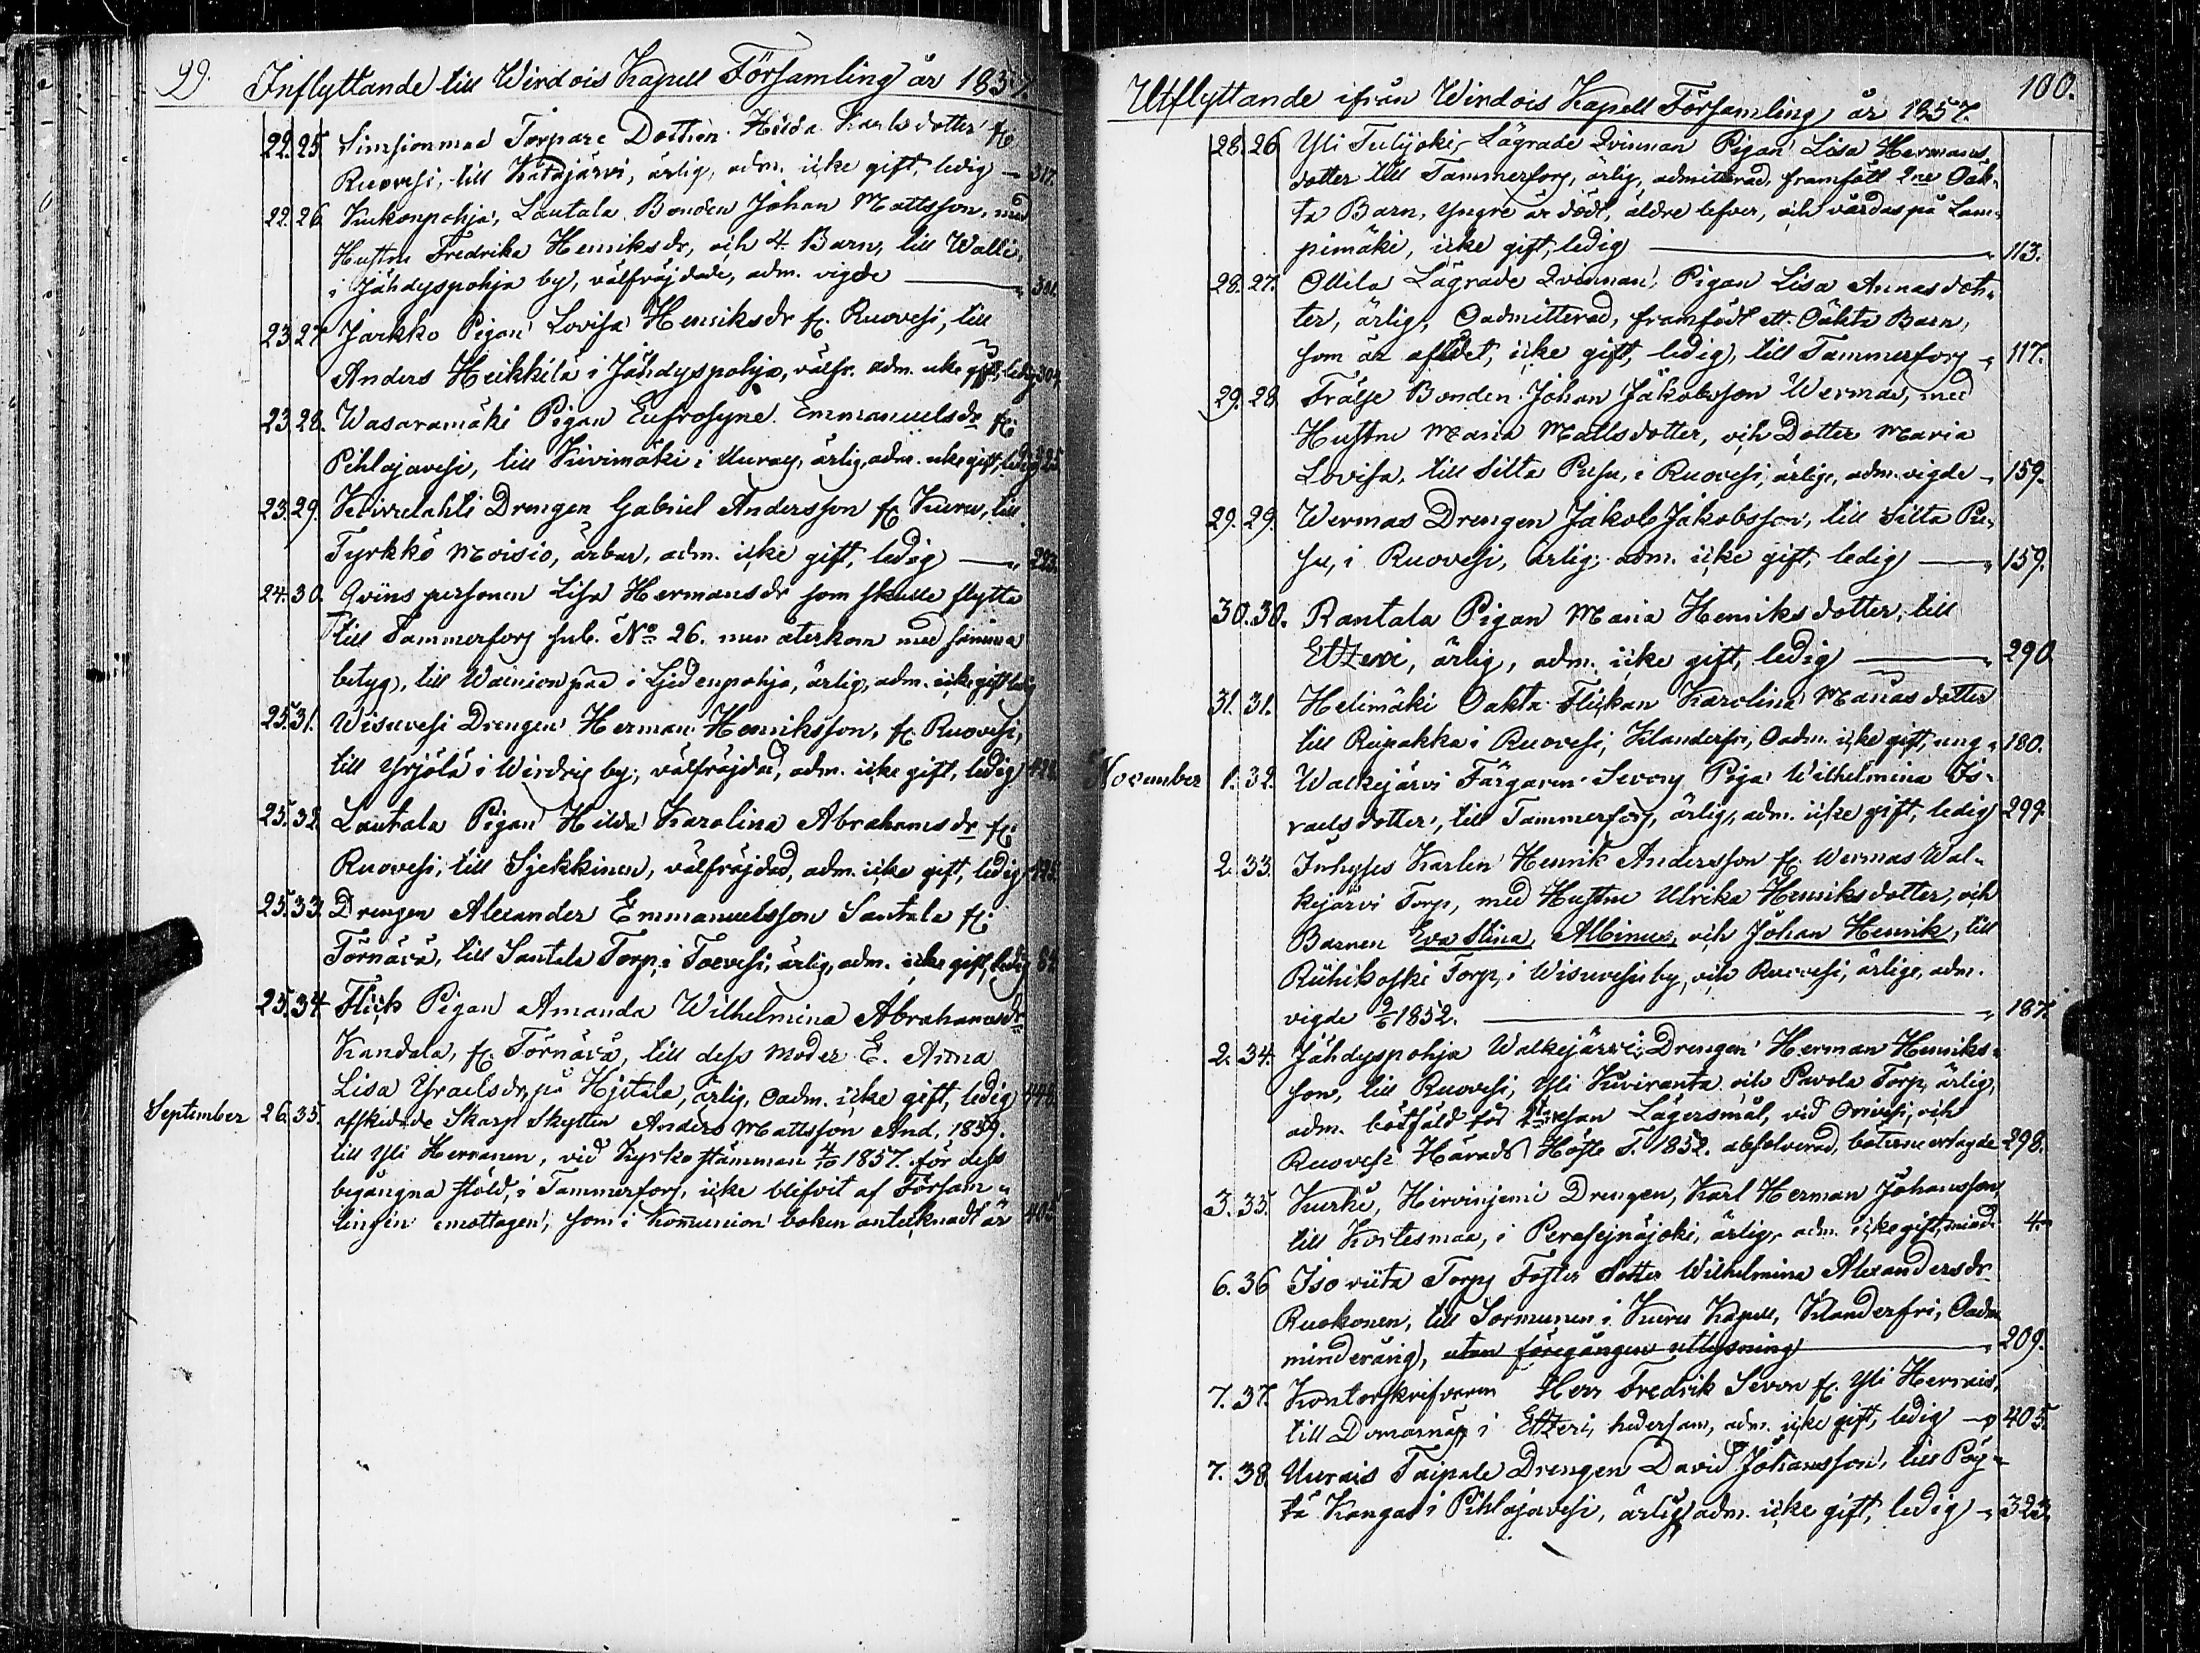 99. Inflyttande till Wirdois Kapell Församling år 1857.
22. 25. Simsionmaa Torpare Dottren Hilda Karlsdotter fr.
Ruovesi, till Katajärvi, ärlig, adm. icke gift, ledig — 317.
22. 26. Kukonpohja, Lautala Bonden Johan Mattsson, med
Hustru Fredrika Henriksdr, och 4 Barn, till Walli,
i Jähdyspohja by, välfräjdade, adm. vigde — 301.
23. 27. Jarkko Pigan Lovisa Henriksdr fr. Ruovesi, till
Anders Heikkilä i Jähdyspohja, välfr. adm. icke gift, ledig 304.
23. 28. Wasaramäki Pigan Eufrosyne Emmanuelsdr fr.
Pihlajavesi, till Kivimäki i Uuray, ärlig, adm. icke gift, ledig 325.
23. 29. Drengen Gabriel Andersson fr Kuru, till
Tyrkkö Moisio, ärbar, adm. icke gift, ledig — 223.
24. 30. Qvinspersonen Lisa Hermansdr som skulle flytta
till Tammerfors sub. No 26. nu återkom med samma
betyg, till Wäinionpää i Ljidenpohja, ärlig, adm. icke gift ledig
25. 31. Wisuvesi Drengen Herman Henriksson, fr. Ruovesi,
till Yrjölä i Wirdois by, välfräjdad, adm. icke gift, ledig 428.
25. 32. Lautala Pigan Hilda Karolina Abrahamsdr fr.
Ruovesi, till Sjekkinen, välfräjdad, adm. icke gift, ledig
25. 33. Drengen Alexander Emmanuelsson Santala fr.
Törnävä, till Santala Torp, i Toevesi, ärlig, adm. icke gift, ledig 84.
25. 34. Flick Pigan Amanda Wilhelmina Abrahamsdr
Kandala, fr. Törnävä, till dess moder E. Anna
Lisa Ysraelsdr, på Hjitala, ärlig, oadm. icke gift, ledig 444.
September 26. 35. afskedade Skarp Skytten Anders Mattsson And, 1859.
till Yli Herranen, vid Kyrkostämman 4/10 1857. för dess
begångna stöld, i Tammerfors, icke blifvit af Försam-
lingen emottagen, som i Kommunion boken antecknadt är 405.
Utflyttande ifrån Wirdois Kapell Församling år 1857. 100.
28. 26. Yli Tulijoki, Lägrade Qvinnan Pigan Lisa Hermans
dotter till Tammerfors, ärlig, admitterad, framfödt 2ne Oäk-
ta Barn, yngre är dödt, äldre lefver, och vårdas på Lam-
pimäki, icke gift, ledig — 113.
28. 27. Ollila Lägrade Qvinnan, Pigan Lisa Annasdot-
ter, ärlig, Oadmitterad, framfödt ett Oäkta Barn,
som är aflidet, icke gift, ledig, till Tammerfors — 117.
29. 28. Frälse Bonden Johan Jakobsson Wermas, med
Hustru Maria Mattsdotter, och Dotter Maria
Lovisa, till Silta Pusu, i Ruovesi, ärlige, adm. vigde — 159.
29. 29. Wermas Drengen Jakob Jakobsson, till Silta Pu-
su, i Ruovesi, ärlig, adm. icke gift, ledig — 159.
30. 30. Rantala Pigan Maria Henriksdotter, till
Etzeri, ärlig, adm. icke gift, ledig — 290.
31. 31. Helimäki Oäkta Flickan Karolina Mariasdotter
till Reipakka i Ruovesi, Klanderfri, Oadm. icke gift, ung 180.
November 1. 32. Walkejärvi Färgaren Sevony Piga Wilhelmina Is-
raelsdotter, till Tammerfors, ärlig, adm. icke gift, ledig 299.
2. 33. Inhyses Karlen Henrik Andersson fr. Wermas Wal-
kejärvi Torp, med Hustru Ulrika Henriksdotter, och
Barnen Eva Stina, Albinus, och Johan Henrik, till
Riihikoski Torp, i Wisuvesi by, och Ruovesi, ärlige, adm.
vigde 9/6 1852. — 187.
2. 34. Jähdyspohja Walkejärvi, Drengen Herman Henriks-
son, till Ruovesi, Yli Kuviranta och Pavola Torp, ärlig,
adm. botfäld för resan Lägersmål, vid Orivesi, och
Ruovesi Härads Höste T. 1852. absolverad, böterne erlagde 298.
3. 35. Kurki, Hirviniemi Drengen, Karl Herman Johansson
till Kortesmaa, i Peräsejnäjoki, ärlig, adm. icke gift, mind. 4.
6. 36. Isoriita Torps Foster dotter Wilhelmina Alexandersdr
Ruokonen, till Sormunen i Kuru Kapell, Klanderfri, Oadm.
minderårig, utan föregången utlysning — 209.
7. 37. Kontorskrifvaren Herr Fredrik Sevon fr. Yli Herrais,
till Domarnäs i Etzeri, hedersam, adm. icke gift, ledig — 405.
7. 38. Uurais Taipale Drengen David Johansson, till Pöy-
tä Kangas i Pihlajavesi, ärlig, adm. icke gift, ledig — 323.